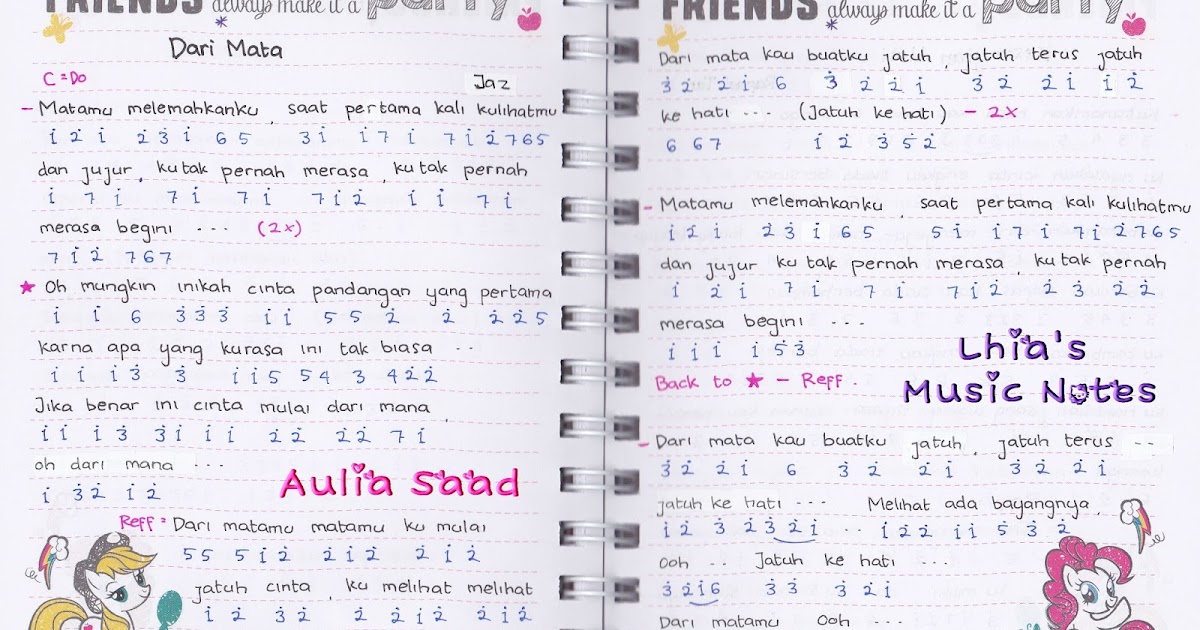 FRIENDS always make it a party
Dari Mata
C = Do
Jaz
- Matamu melemahkanku , saat pertama kali kulihatmu
i̇ 2̇ i̇ 2̇ 3̇ i̇ 6 5 3 i̇ i̇ 7 i̇ 7 i̇ 2̇ 7 6 5
dan jujur , ku tak pernah merasa , ku tak pernah
i̇ 7 i̇ 7 i̇ 7 i̇ 7 i̇ 2̇ i̇ i̇ 7 i̇
merasa begini ... (2x)
7 i̇ 2̇ 7 6 7
★ Oh mungkin inikah cinta pandangan yang pertama
i̇ i̇ 6 3̇ 3̇ 3̇ i̇ i̇ 5 5 2̇ 2̇ 2̇ 2̇ 5
Karna apa yang kurasa ini tak biasa ..
i̇ i̇ i̇ 3̇ 3̇ i̇ i̇ 5 5 4 3 4 2̇ 2̇
Jika benar ini cinta mulai dari mana ,
i̇ i̇ i̇ 3̇ 3̇ i̇ i̇ i̇ 2̇ 2̇ 2̇ 2̇ 7 i̇
oh dari mana ...
i̇ 3̇ 2̇ i̇ 2̇
Aulia Saad
Reff = Dari matamu matamu ku mulai
5 5 5 i̇ 2̇ 2̇ i̇ 2̇ 2̇ i̇ 2̇
jatuh cinta , ku melihat melihat
i̇ 2̇ 3̇ 2̇ 2̇ 2̇ i̇ 2̇ 2̇ i̇ 2̇
FRIENDS always make it a party
Dari mata kau buatku jatuh , jatuh terus jatuh
3̇ 2̇ 2̇ i̇ 6 3̇ 2̇ 2̇ i̇ 3̇ 2̇ 2̇ i̇ i̇ 2̇
ke hati ... (Jatuh ke hati) - 2x
6 6 7 i̇ 2̇ 3̇ 5̇ 2̇
- Matamu melemahkanku , saat pertama kali kulihatmu
i̇ 2̇ i̇ 2̇ 3̇ i̇ 6 5 5 i̇ i̇ 7 i̇ 7 i̇ 2̇ 7 6 5
dan jujur ku tak pernah merasa , ku tak pernah
i̇ 2̇ i̇ 7 i̇ 7 i̇ 7 i̇ 2̇ 2̇ 3̇ 2̇ 2̇
merasa begini ...
i̇ i̇ i̇ i̇ 5̇ 3̇
Lhia's
Music Notes
Back to ★ - Reff .
- Dari mata kau buatku jatuh , jatuh terus --
3̇ 2̇ 2̇ i̇ 6 3̇ 2̇ 2̇ i̇ 3̇ 2̇ 2̇ i̇
jatuh ke hati .... Melihat ada bayangnya ,
i̇ 2̇ 3̇ 2̇ 3̇ 2̇ i̇ ... i̇ 2̇ 2̇ i̇ i̇ 5 3̇ 2̇
Ooh .. Jatuh ke hati ...
3̇ 2̇ i̇ 6 3̇ 3̇ 3̇ 2̇ i̇
Dari matamu Ooh ...